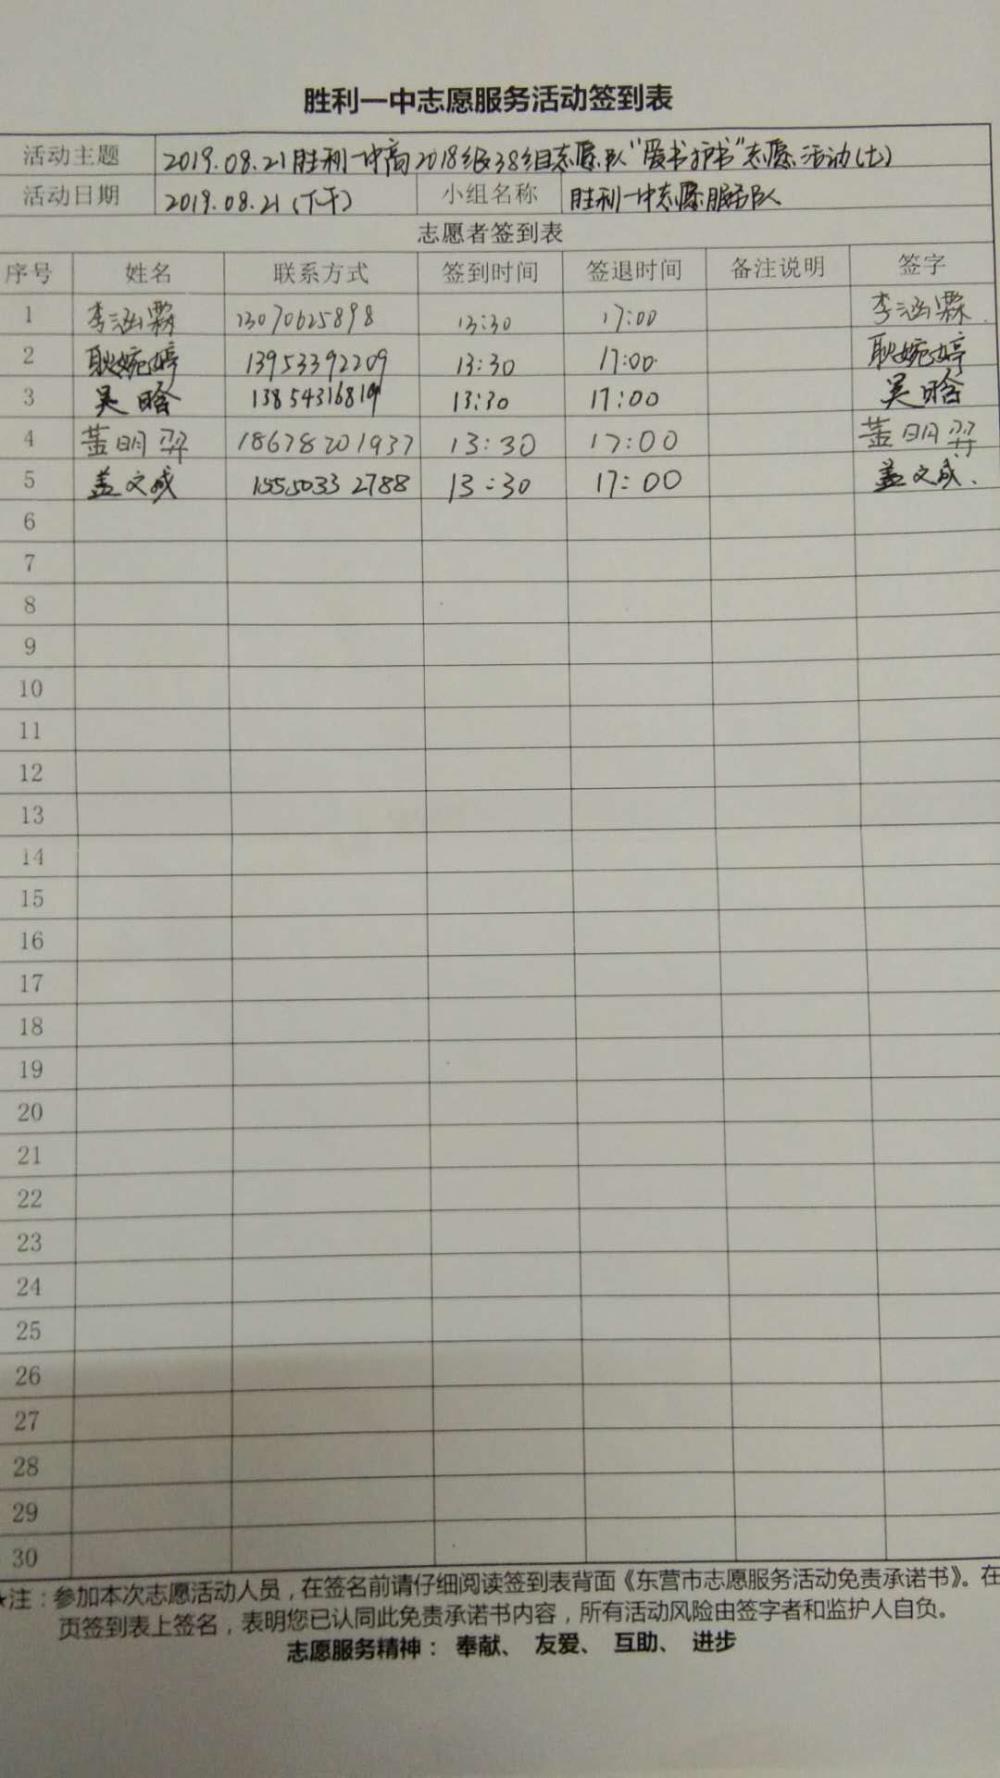 胜利一中志愿服务活动签到表
活动主题 2019.08.21胜利一中高2018级38组志愿队"爱书护书"志愿活动(七)
活动日期 2019.08.21(下午) 小组名称 胜利一中志愿服务队
志愿者签到表
序号 姓名 联系方式 签到时间 签退时间 备注说明 签字
1 李涵霖 13070625898 13:30 17:00 李涵霖
2 耿婉婷 13953392209 13:30 17:00 耿婉婷
3 吴晗 13:30 17:00 吴晗
4 董明羿 18678201937 13:30 17:00 董明羿
5 盖文成 15550332788 13:30 17:00 盖文成.
6
7
8
9
10
11
12
13
14
15
16
17
18
19
20
21
22
23
24
25
26
27
28
29
30
★注：参加本次志愿活动人员，在签名前请仔细阅读签到表背面《东营市志愿服务活动免责承诺书》。在
页签到表上签名，表明您已认同此免责承诺书内容，所有活动风险由签字者和监护人自负。
志愿服务精神： 奉献、 友爱、 互助、 进步